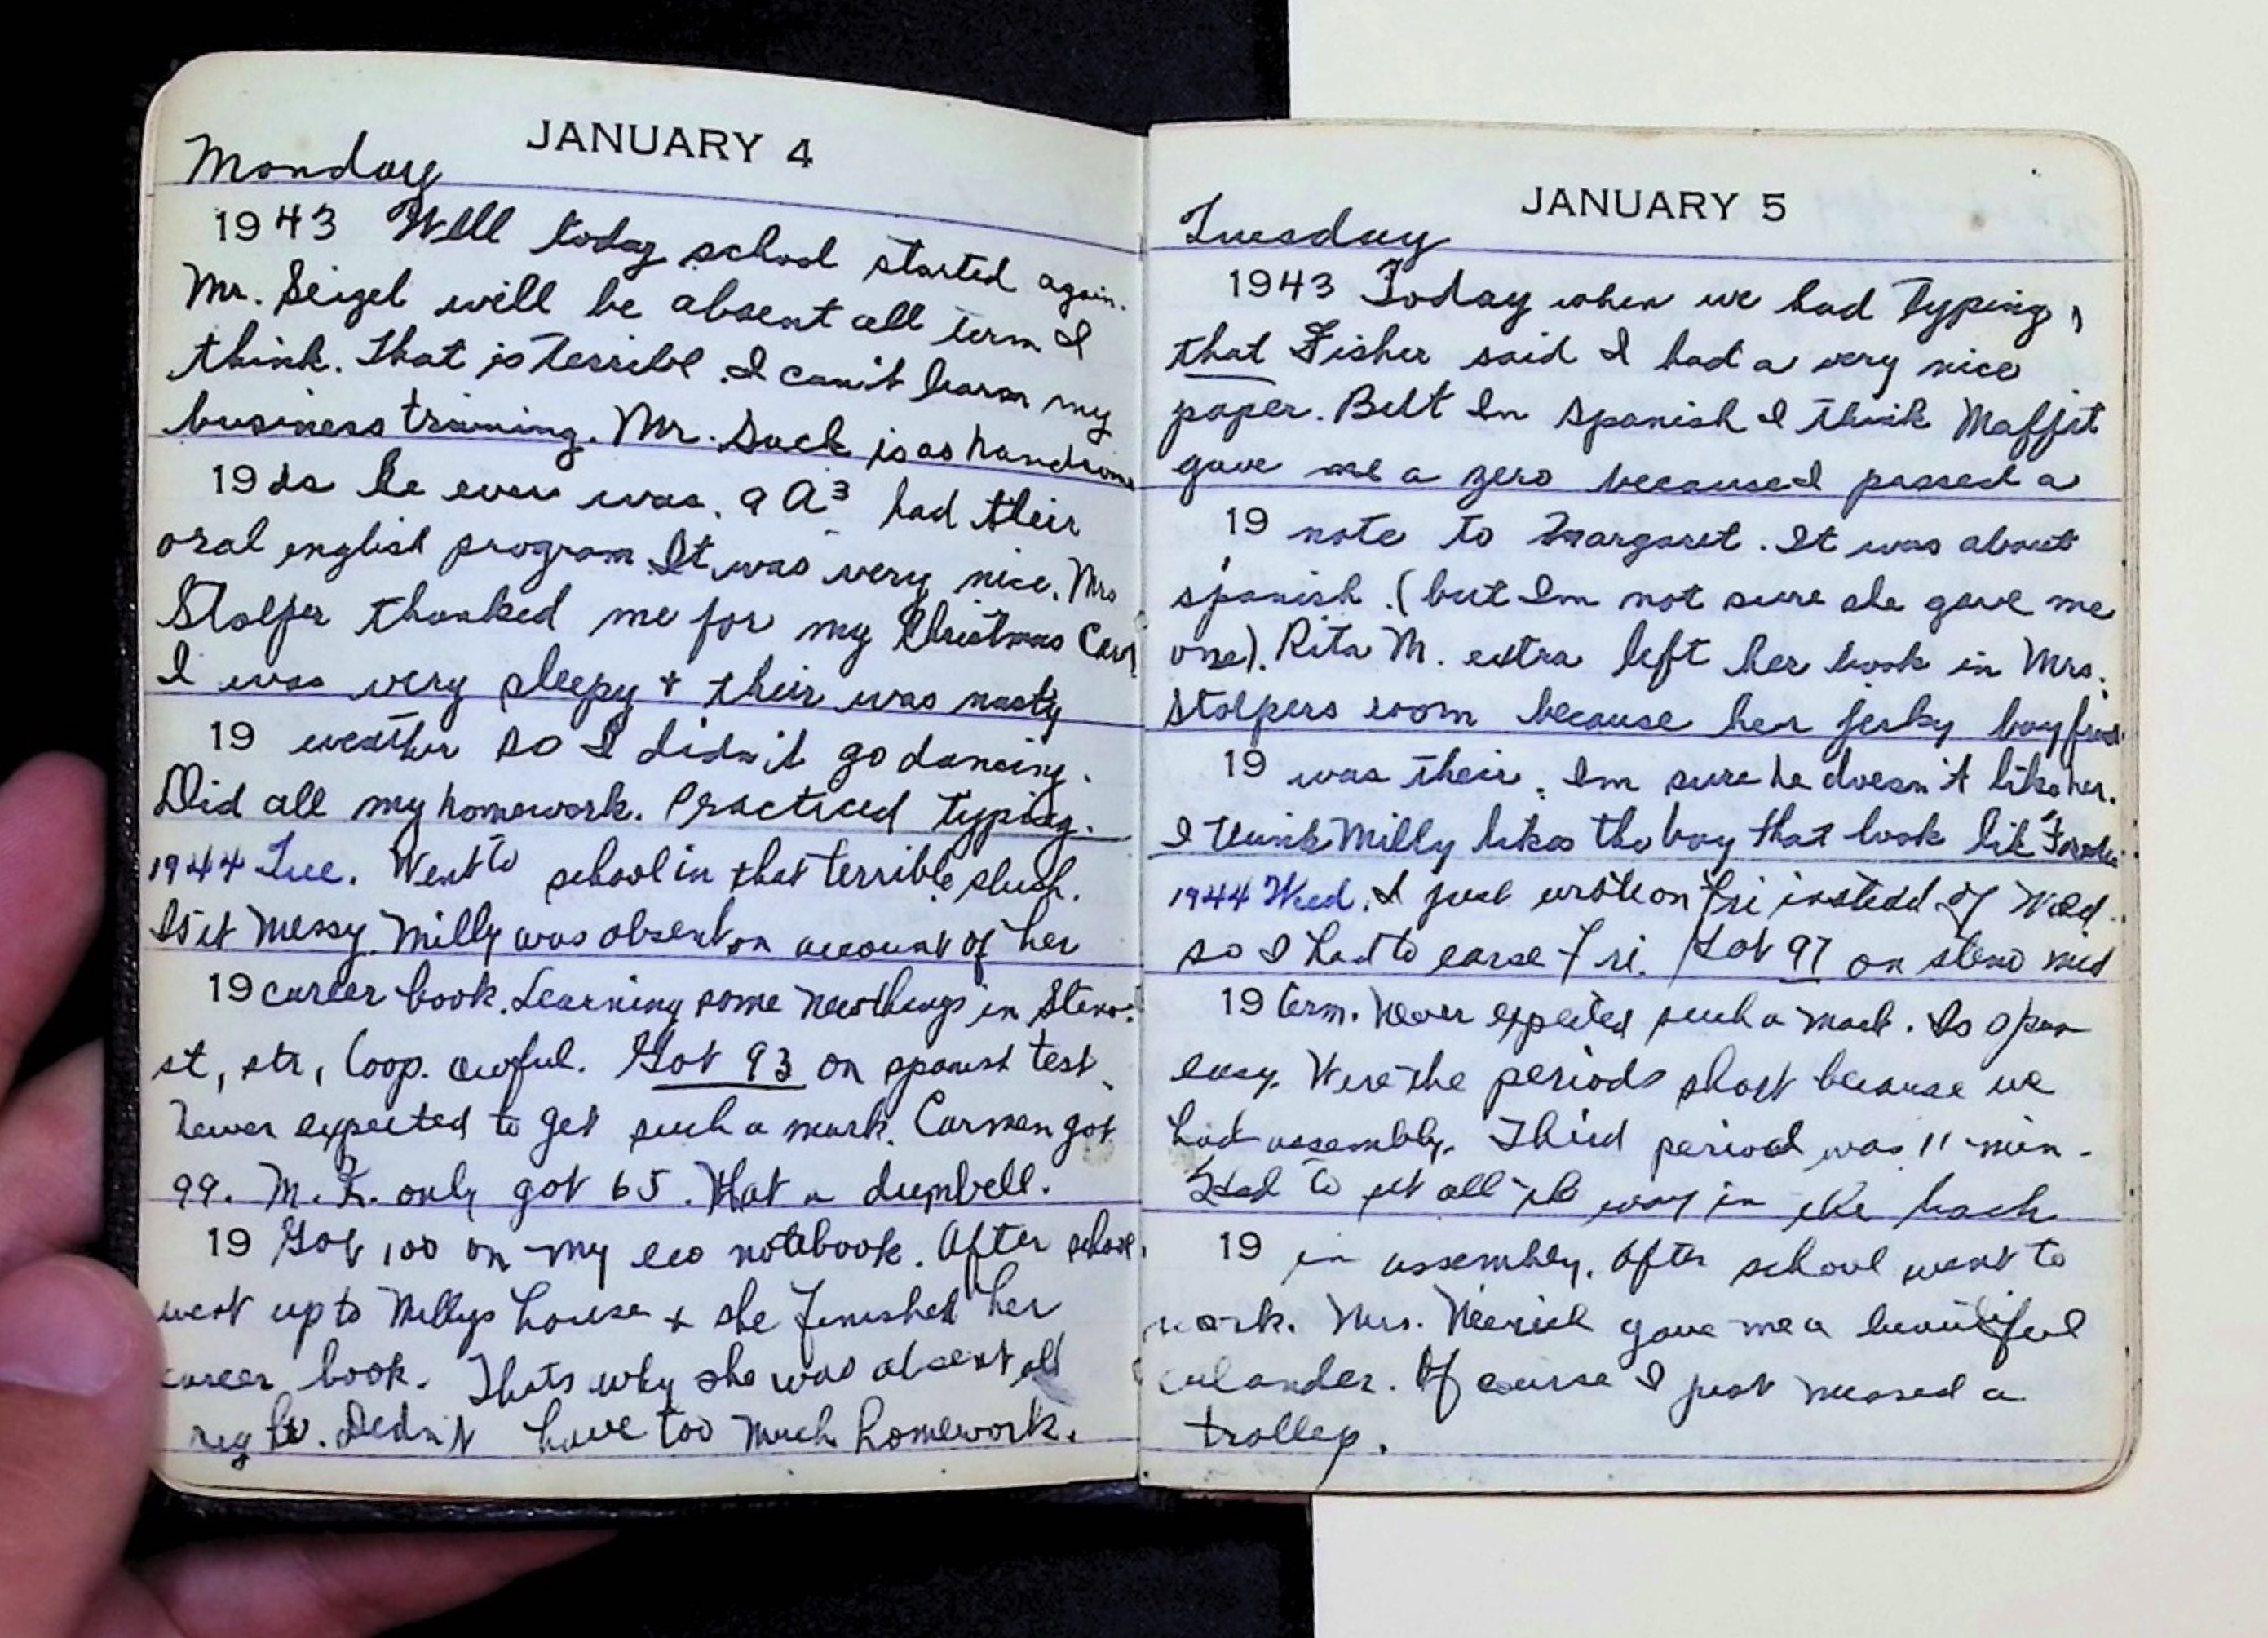 JANUARY 4
Monday
1943 Well today school started again.
Mr. Seigel will be absent all term I
think. That is terrible. I can't learn my
business training. Mr. Sack is as handsome
19 as he ever was. 9A3 had their
oral english program. It was very nice. Mrs
Stolper thanked me for my Christmas Card
I was very sleepy + their was nasty
19 weather so I didn't go dancing.
Did all my homework. Practiced typing.
1944 Tue. Went to school in that terrible slush.
Is it messy. Milly was absent on account of her
19 career book. Learning some new things in Steno.
st, str, loop. awful. Got 93 on spanish test.
Never expected to get such a mark. Carmen got
99. M. K. only got 65. What a dumbell.
19 Got 100 on my eco notebook. After school
went up to Millys house + she finished her
career book. Thats why she was absent all
right. Didn't have too much homework.
JANUARY 5
Tuesday
1943 Today when we had typing,
that Fisher said I had a very nice
paper. But In Spanish I think Maffit
gave me a zero because I passed a
19 note to Margaret. It was about
spanish. (but Im not sure she gave me
one). Rita M. extra left her book in Mrs.
Stolpers room because her jerky boyfriend
19 was their. Im sure he doesn't like her.
I think Milly likes the boy that look like
1944 Wed. I just wrote on Fri instead of Wed.
so I had to earse Fri. Got 97 on steno mid
19 term. Never expected such a mark. So
easy. Were the periods short because we
had assembly. Third period was 11 min.
Had to sit all the way in the back
19 in assembly. After school went to
work. Mrs. gave me a beautiful
calander. Of course I just missed a
trolley.